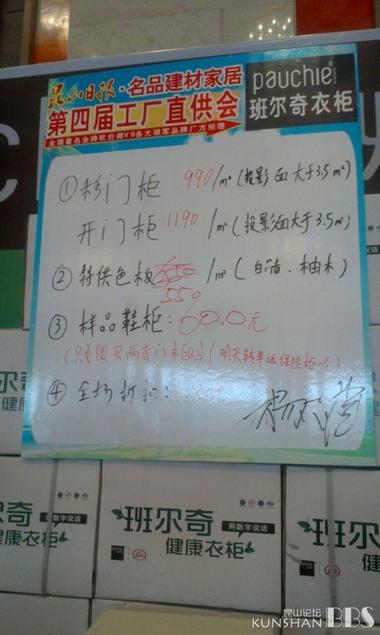 昆山日报·名品建材家居
第四届工厂直供会
全国著名金牌砍价师VS各大领军品牌厂方经理
pauchie
班尔奇衣柜
① 移门柜 990/m²(投影面大于3.5m²)
开门柜 1190/m²(投影面大于3.5m²)
② 特供色板 550/m²(白洁、柚木)
③ 样品鞋柜:60.0元
(明天转车送保险柜一个)
④ 全场折扣:
班尔奇
健康衣柜
用数字说话
班尔奇
健康衣柜
用数字说话
班尔奇
健康衣柜
昆山论坛
KUNSHAN BBS